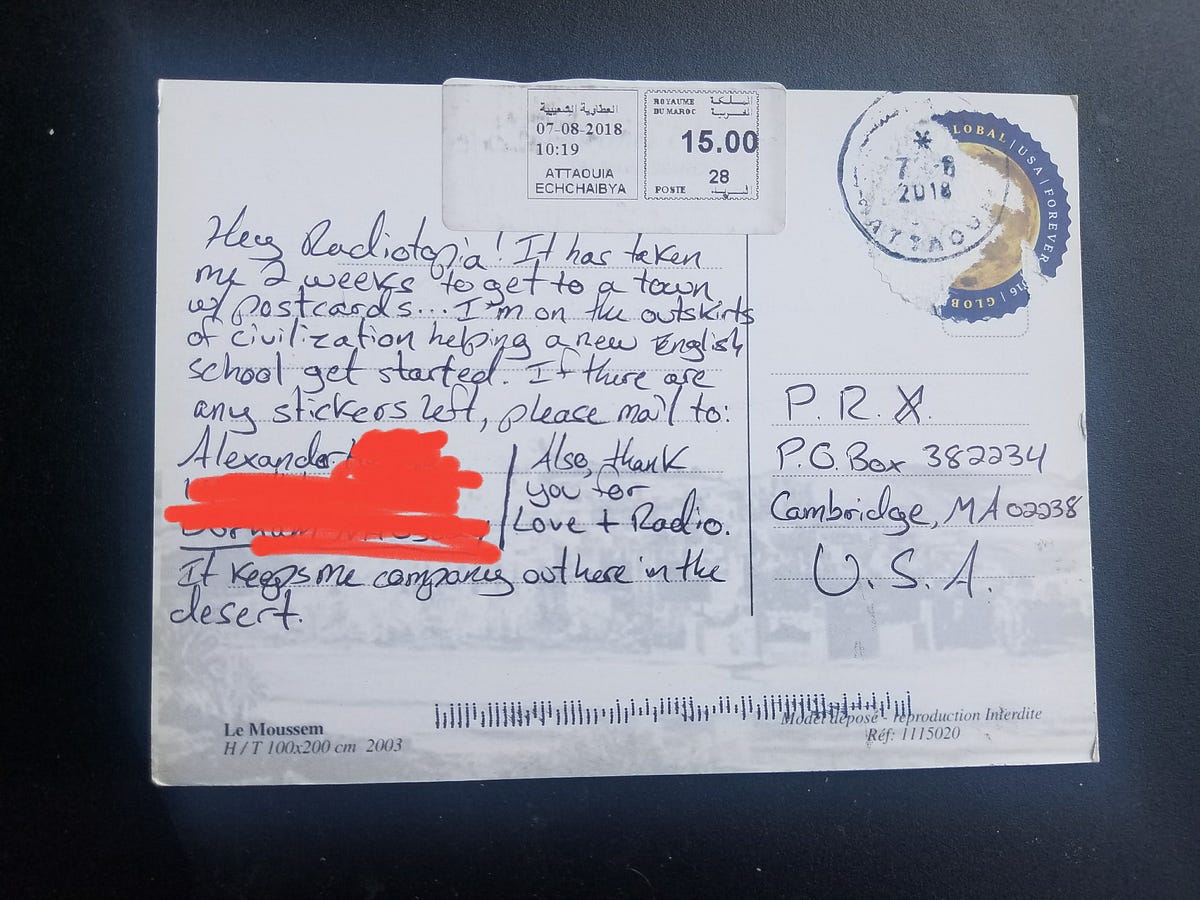 العطاوية الشعيبية
07-08-2018
10:19
ATTAOUIA
ECHCHAIBYA
ROYAUME
DU MAROC
المملكة
المغربية
15.00
28
POSTE
البريد
*
2018
GLOBAL | USA | FOREVER
Hey Radiotopia! It has taken
me 2 weeks to get to a town
w/ postcards... I'm on the outskirts
of civilization helping a new English
school get started. If there are
any stickers left, please mail to:
Alexander
Also, thank
you for
Love + Radio.
It keeps me company out here in the
desert.
P. R. X.
P.O. Box 382234
Cambridge, MA 02238
U. S. A.
Le Moussem
H / T 100x200 cm 2003
Model déposé - reproduction Interdite
Réf: 1115020